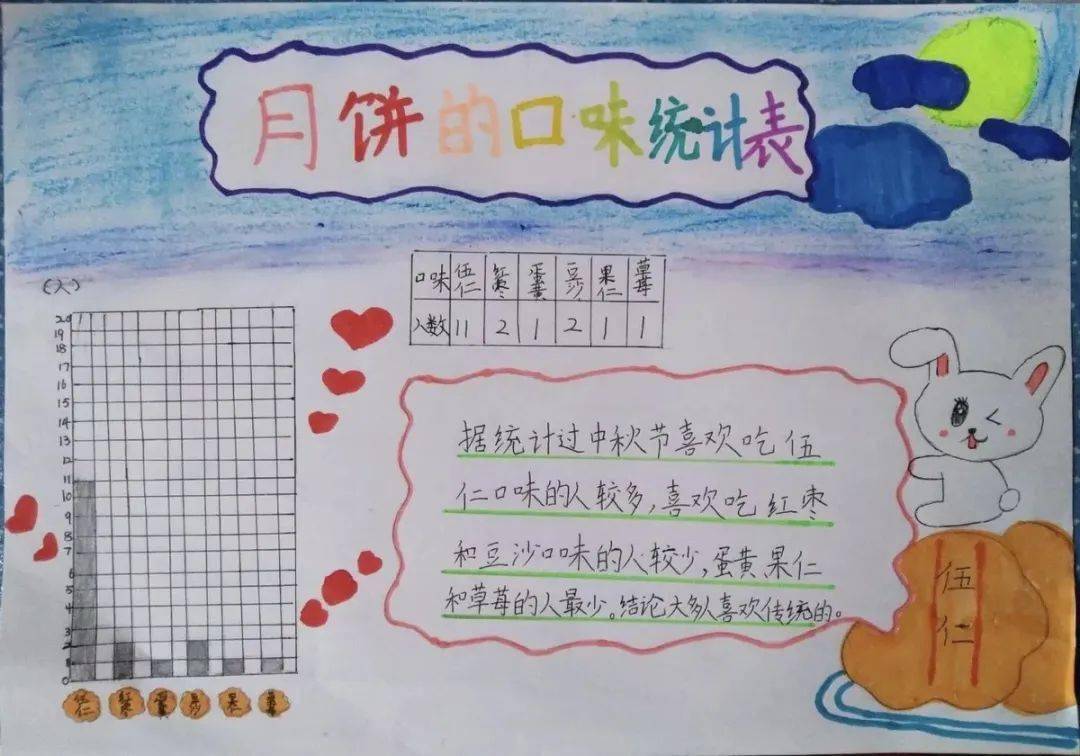 月饼的口味统计表
口味 伍仁 红枣 蛋黄 豆沙 果仁 草莓
人数 11 2 1 2 1 1
(人)
20
19
18
17
16
15
14
13
12
11
10
9
8
7
6
5
4
3
2
1
0
伍仁 红枣 蛋黄 豆沙 果仁 草莓
据统计过中秋节喜欢吃伍
仁口味的人较多,喜欢吃红枣
和豆沙口味的人较少,蛋黄、果仁
和草莓的人最少。结论大多人喜欢传统的。
伍
仁